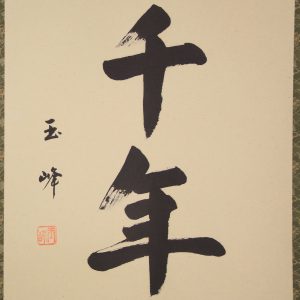 千年
玉峰